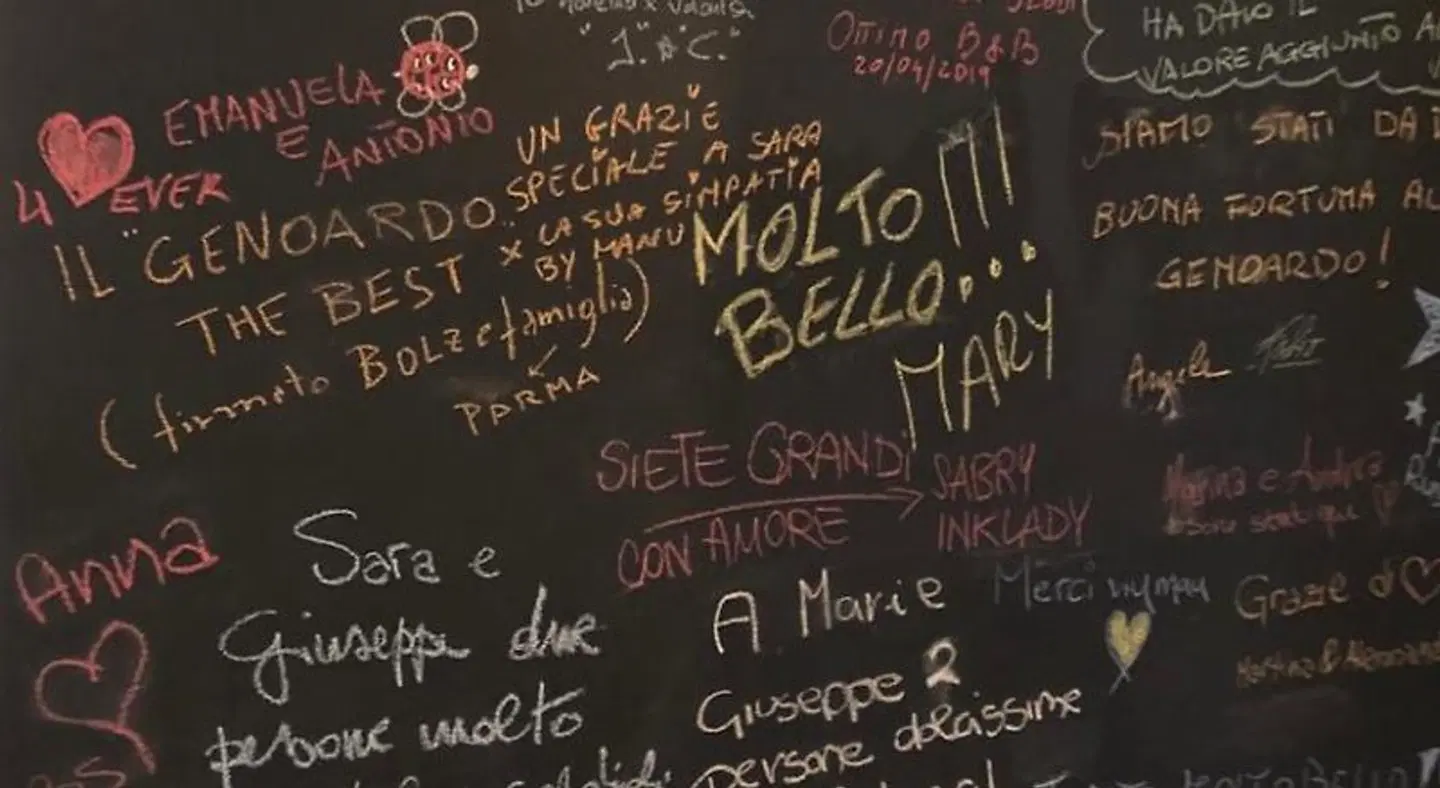 "J. A. C."
OTTIMO B&B
20/04/2019
HA DATO IL
VALORE AGGIUNTO A
EMANUELA
E ANTONIO
4 EVER
IL "GENOARDO"
THE BEST
(firmato BOLZ e famiglia)
PARMA
UN GRAZIE
SPECIALE A SARA
x LA SUA SIMPATIA
BY MANU
MOLTO !!!
BELLO...
MARY
SIAMO STATI DA
BUONA FORTUNA AL
GENOARDO!
Angela
SIETE GRANDI
CON AMORE
SABRY
INKLADY
Marina e Andrea
Anna
Sara e
Giuseppe due
persone molto
A Marie
Giuseppe 2
persone dolcissime
Merci
Grazie di
Molto Bello